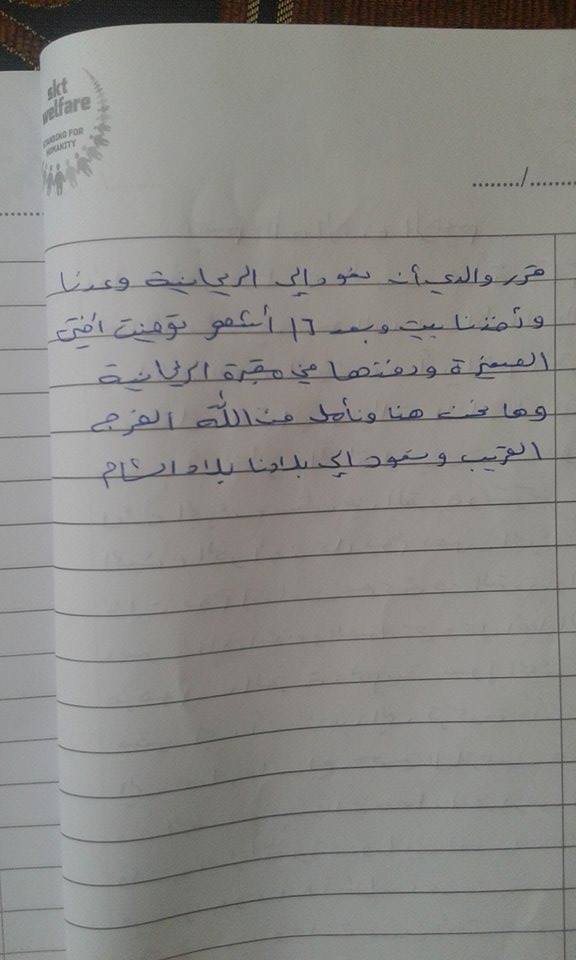 skt
welfare
STANDING FOR
HUMANITY
......../........
قرر والدي أن نعود إلى الريحانية وعدنا
وأخذنا بيت وبعد ١٦ أشهو توفيت أختي
الصغيرة ودفنتها في مقبرة الريحانية
وها نحن هنا ونأمل من الله الفرج
القريب ونعود إلى بلادنا بلاد الشام